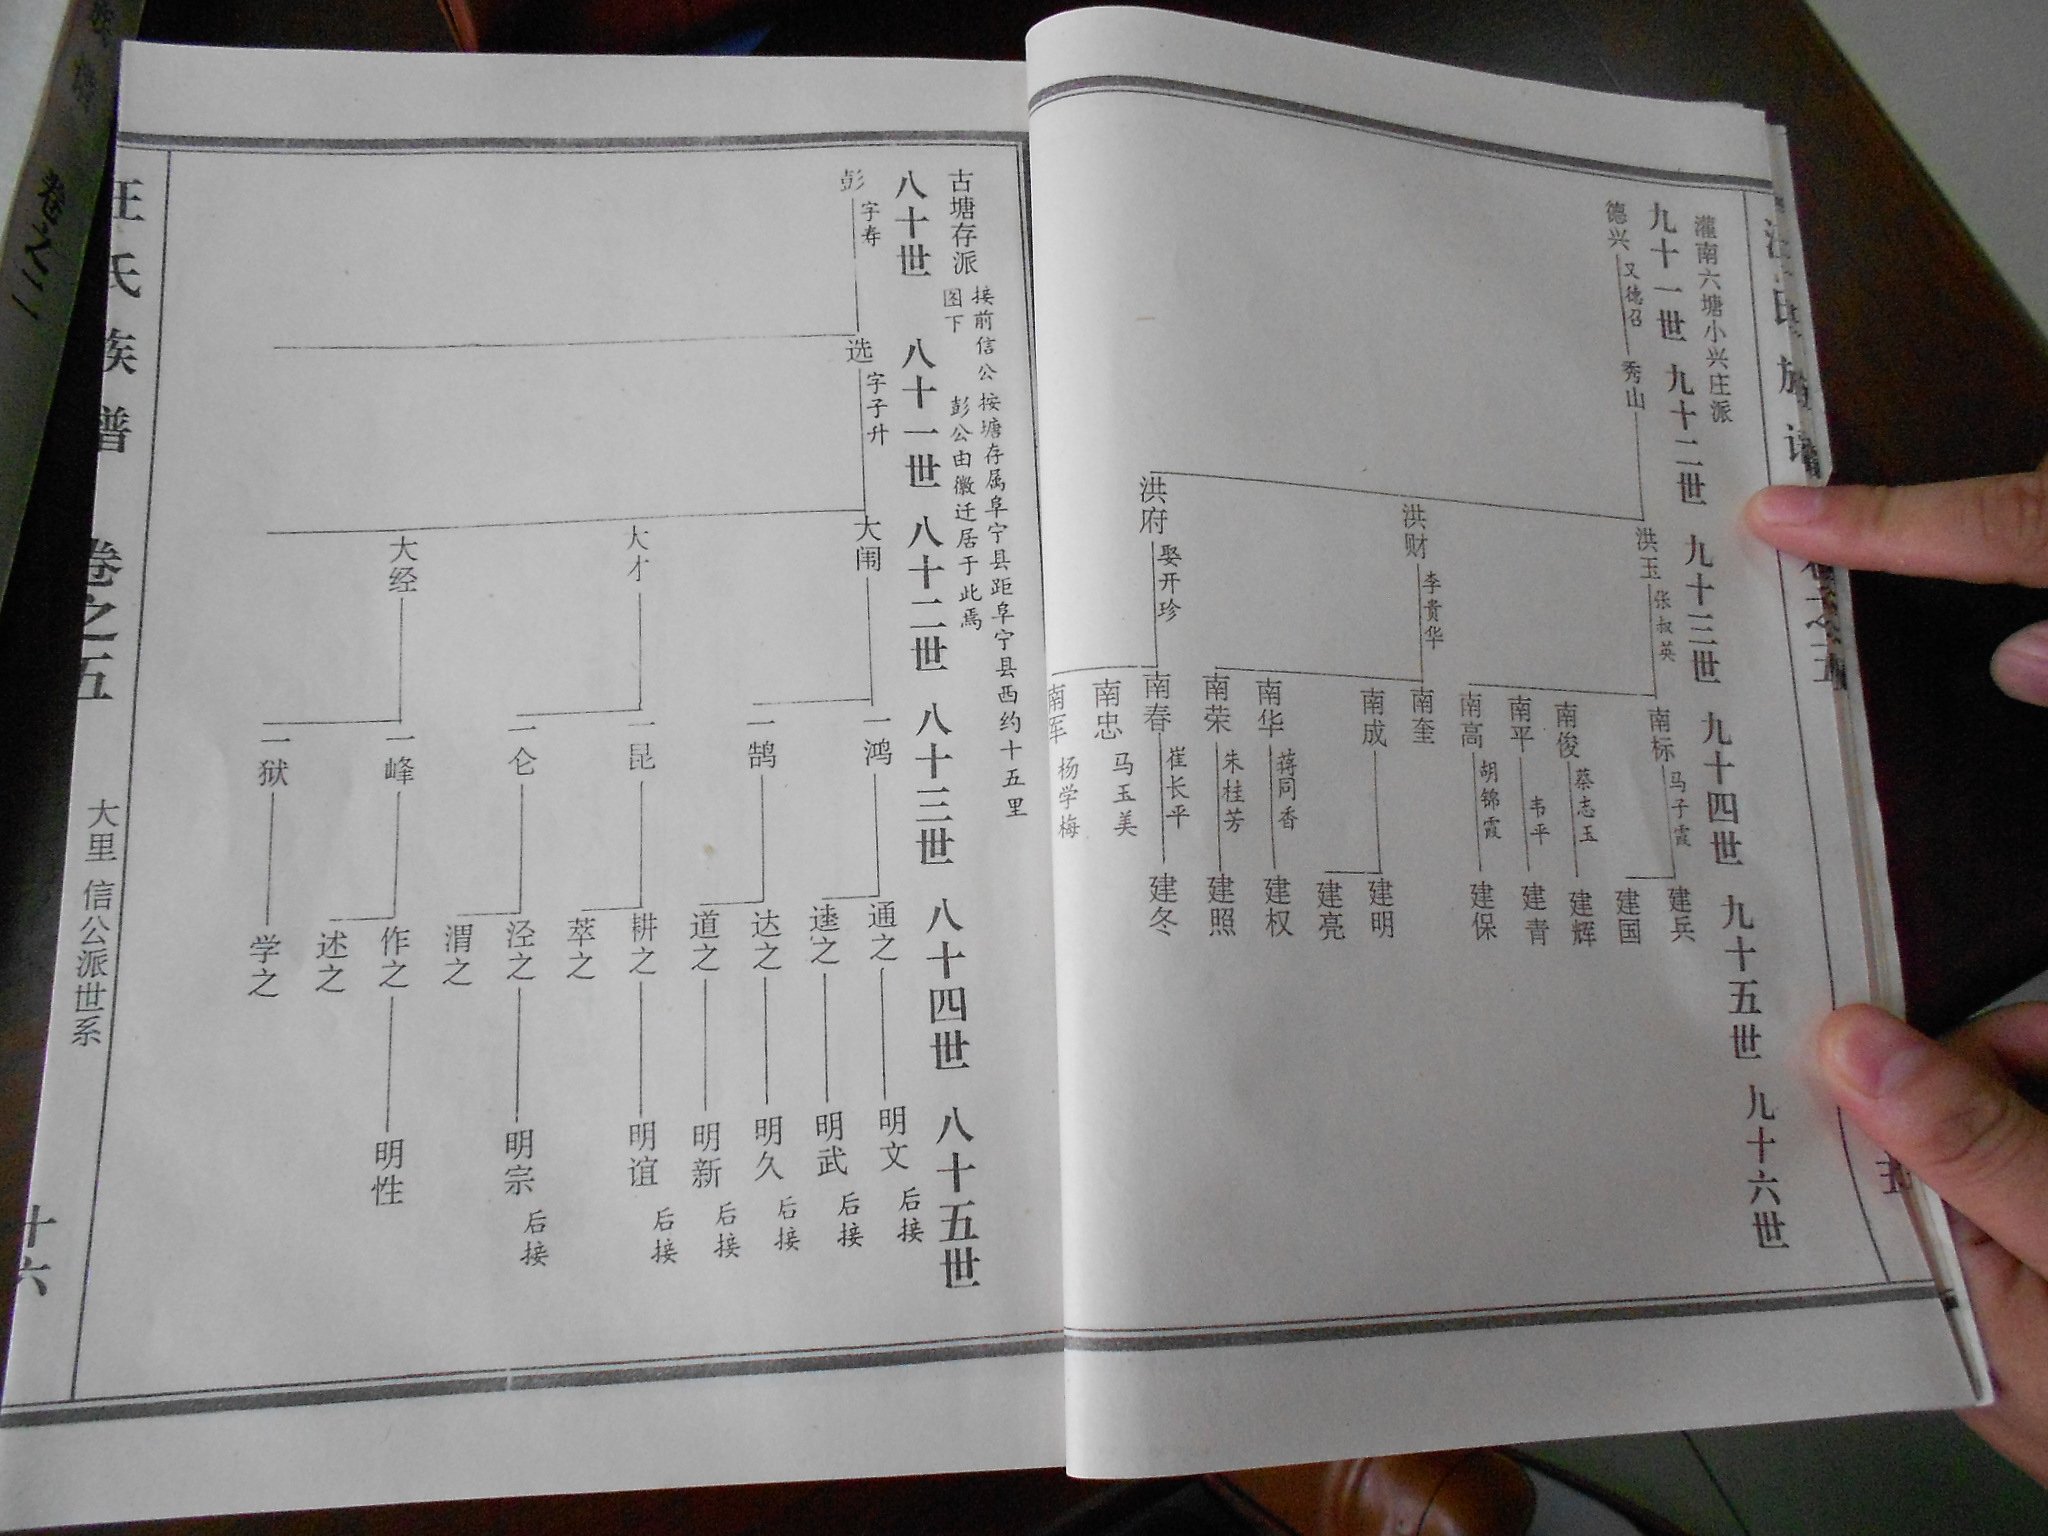 灌南六塘小兴庄派
九十一世 九十二世 九十三世 九十四世 九十五世 九十六世
德兴 又德召
秀山
洪玉 张叔英
洪财 李贵华
洪府 娶开珍
南标 马子霞
南俊 蔡志玉
南平 韦平
南高 胡锦霞
南奎
南成
南华 蒋同香
南荣 朱桂芳
南春 崔长平
南忠 马玉美
南军 杨学梅
建兵
建国
建辉
建青
建保
建明
建亮
建权
建照
建冬
古塘存派
接前信公
图下
按塘存属阜宁县距阜宁县西约十五里
彭公由徽迁居于此焉
八十世 八十一世 八十二世 八十三世 八十四世 八十五世
彭 字寿
选 字子升
大闱
大才
大经
一鸿
一鹄
一昆
一仑
一峰
一狱
通之
逵之
达之
道之
耕之
萃之
泾之
渭之
作之
述之
学之
明文 后接
明武 后接
明久 后接
明新 后接
明谊 后接
明宗 后接
明性
汪氏族谱 卷之五
大里 信公派世系
十六
卷之二